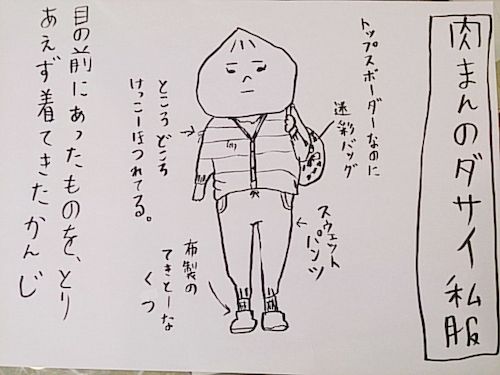 肉まんのダサイ私服
トップスボーダーなのに
迷彩バッグ
スウェット
パンツ
ところどころ
けっこーほつれてる。
布製の
てきとーな
くつ
目の前にあったものを、とり
あえず着てきたかんじ